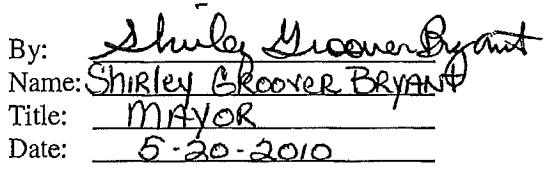 By: Shirley Groover Bryant
Name: Shirley Groover Bryant
Title: MAYOR
Date: 5-20-2010